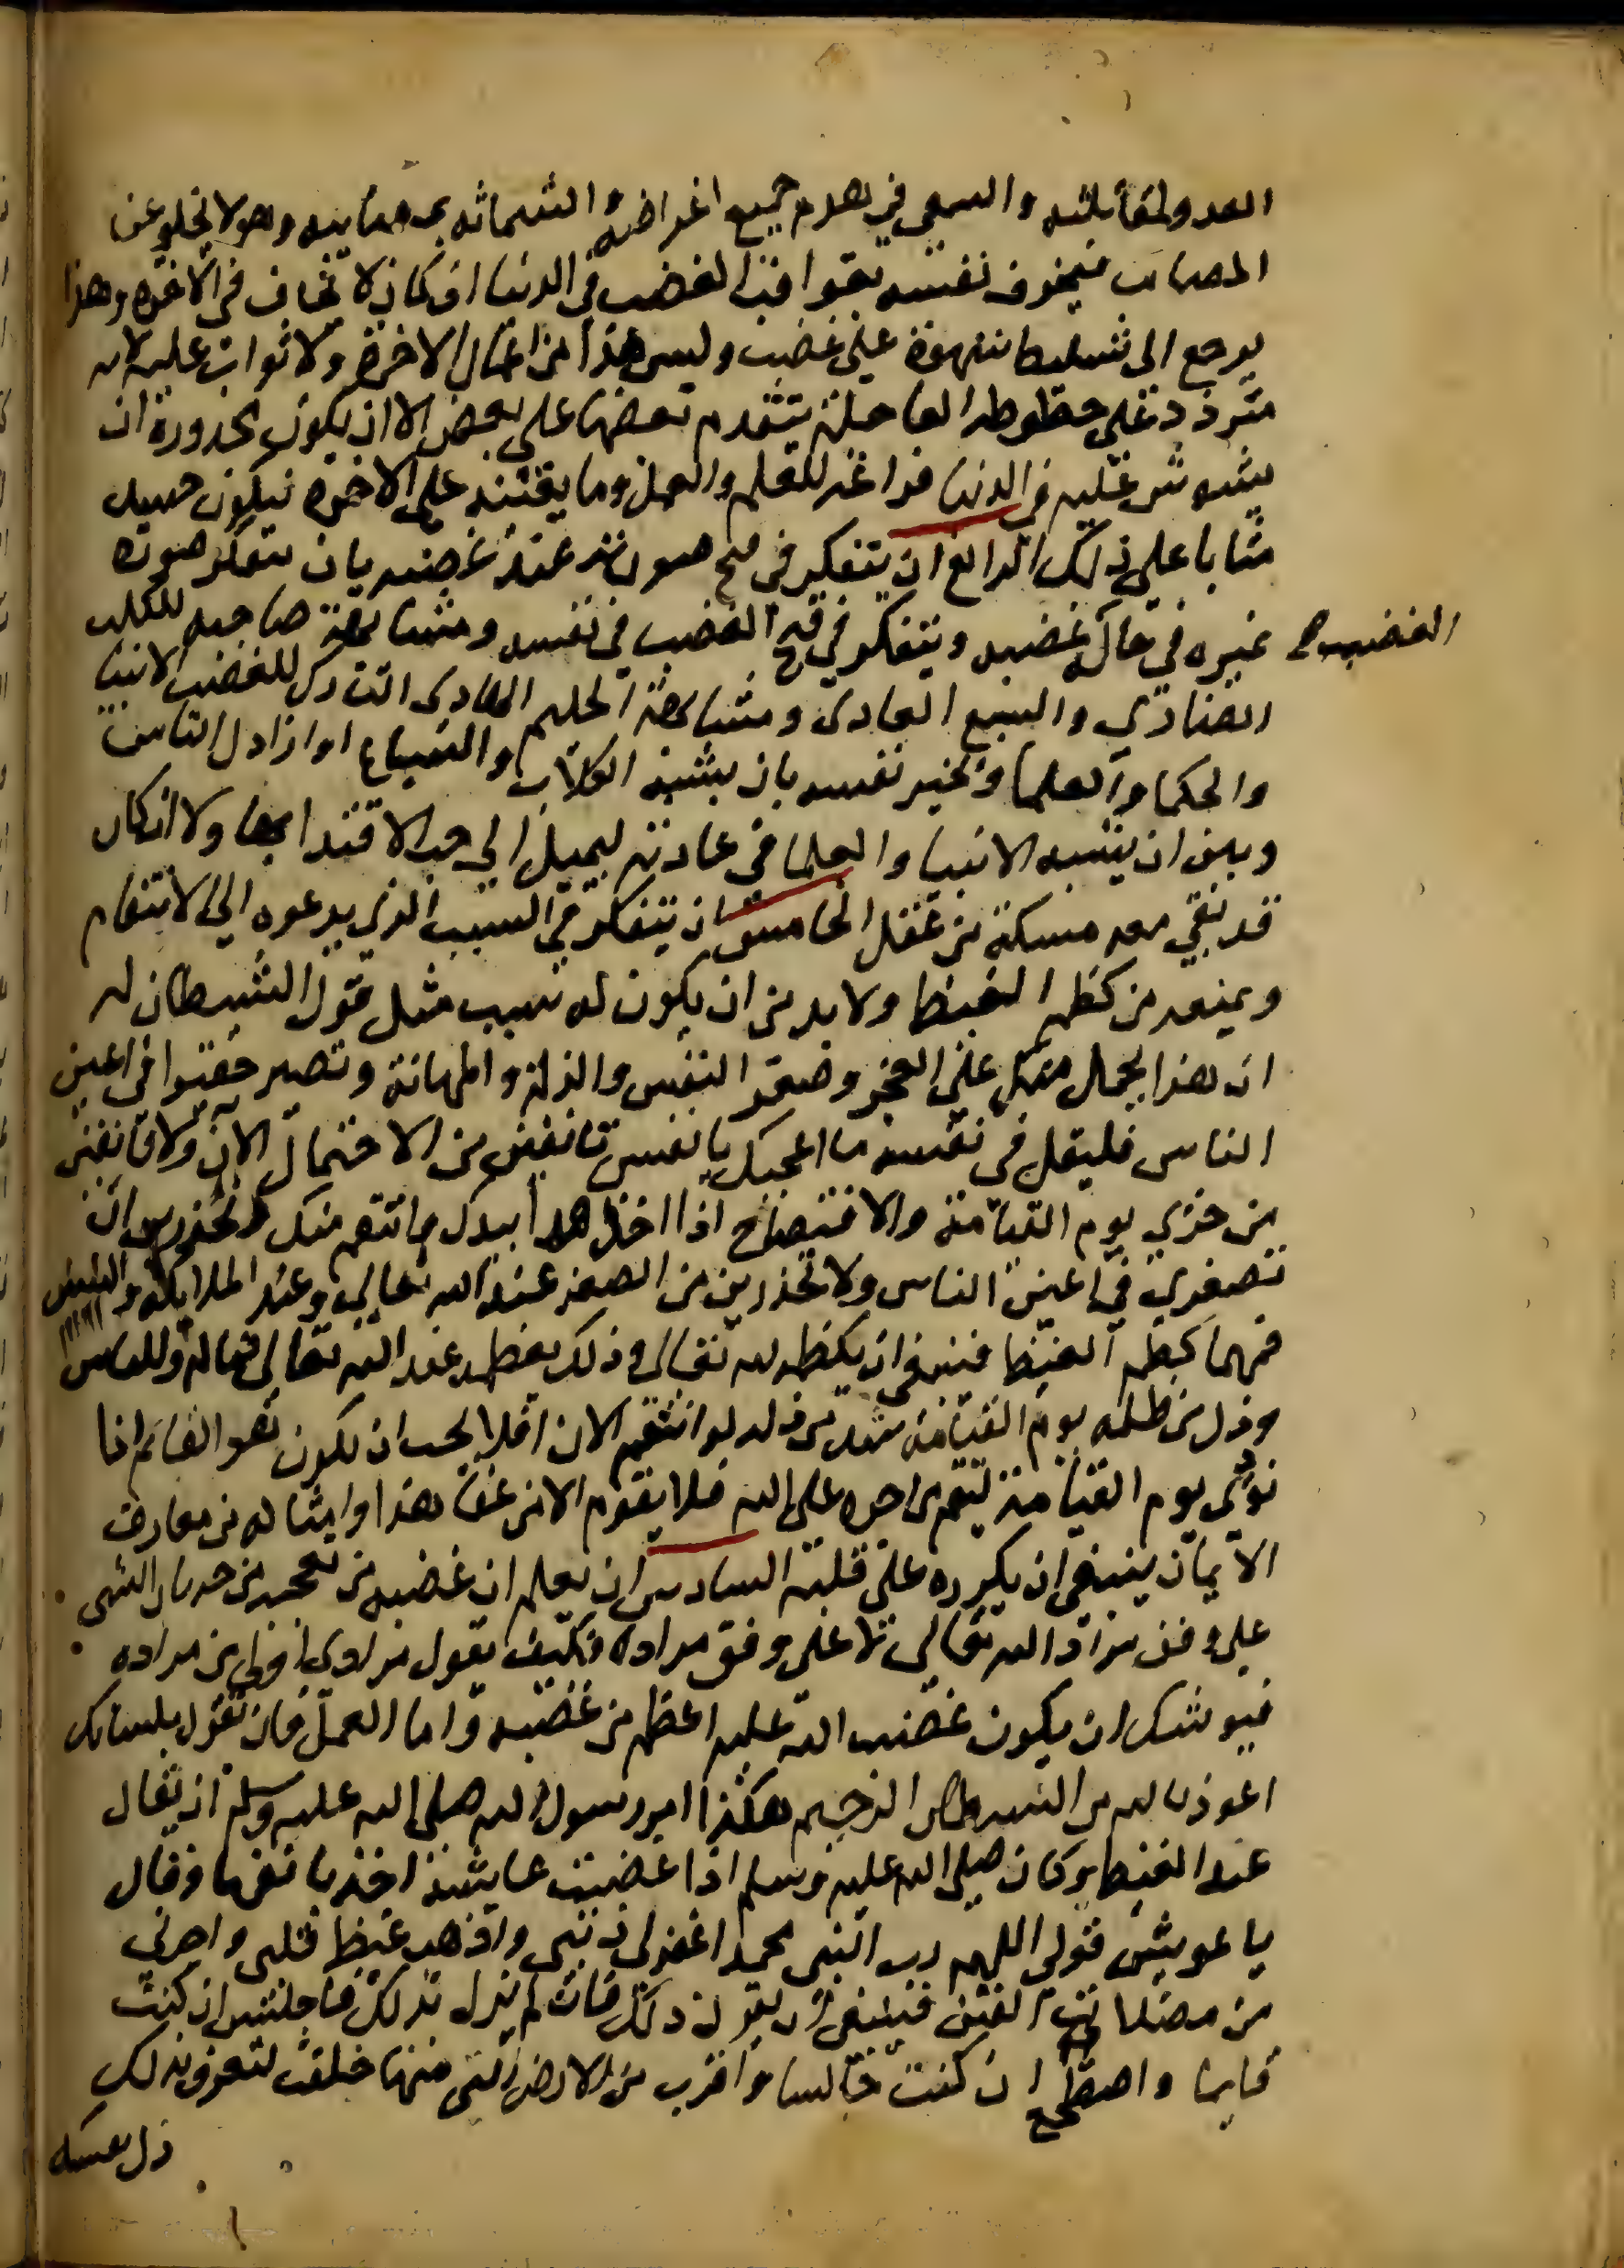 العدو لمقابلته والسعي في هدم جميع اغراضه والشماتة بمصايبه وهو لا يخلو عن
المصايب فيخوف نفسه بعواقب الغضب في الدنيا ان كان لا يخاف في الاخرة وهذا
يرجع الى تسليط شهوة على غضب وليس هذا من اعمال الاخرة ولا ثواب عليه لانه
متردد على حظوظه العاجلة يتقدم بعضها على بعض الا ان يكون محذوره ان
يتشوش عليه في الدنيا فراغه للعلم والعمل وما يعينه على الاخرة فيكون حينيد
مثابا على ذلك الرابع ان يتفكر في قبح صورته عند غضبه بان يتفكر صورة
غيره في حال غضبه ويتفكر في قبح الغضب في نفسه ومشابهة صاحبه للكلب
الغضب صح
الضاري والسبع العادي ومشابهة الحليم الهادي التارك للغضب الانبيا
والحكما والعلما ويخير نفسه بان يشبه الكلاب والسباع اوارذال الناس
وبين ان يتشبه الانبيا والعلما في عادته ليميل الى حب الاقتدا بهما ولا ان كان
قد بقي معه مسكة من عقل الخامس ان يتفكر في السبب الذي يدعوه الى الانتقام
ويمنعه من كظم الغيظ ولا بد من ان يكون له سبب مثل قول الشيطان له
ان هذا يحمل منك على العجز وصغر النفس والذلة والمهانة وتصير حقيرا في اعين
الناس فليقل في نفسه ما اعجبك يا نفس تانفين من الاحتمال الان ولا تانفين
من خزي يوم القيامة والافتضاح اذا اخذ هذا بيدك وانتقم منك وتحذرين ان
تصغري في اعين الناس ولا تحذرين من الصغر عند الله تعالى وعند الملايكة والنبيين
فمهما كظم الغيظ فينبغي ان يكظمه لله تعالى وذلك يعظمه عند الله تعالى فماله وللناس
وذل من ظلمه يوم القيامة اشد من ذله لو انتقم الان افلا يحب ان يكون هو القايم اذا
نودي يوم القيامة ليقم من اجره على الله فلا يقوم الا من عفا هذا وامثاله من معارف
الايمان ينبغي ان يكرره على قلبه السادس ان يعلم ان غضبه من تعجبه من جريان الشي
على وفق مراد الله تعالى لا على وفق مراده فكيف يقول مرادي اولى من مراده
فيوشك ان يكون غضب الله عليه اعظم من غضبه واما العمل فان تقول بلسانك
اعوذ بالله من الشيطان الرجيم هكذا امر رسول الله صلى الله عليه وسلم ان يقال
عند الغيظ وكان صلى الله عليه وسلم اذا غضبت عايشة اخذ بانفها وقال
يا عويش قولي اللهم رب النبي محمد اغفر لي ذنبي واذهب غيظ قلبي واجرني
من مضلات الفتن فينبغي ان يقول ذلك فان لم يزل بذلك فاجلس ان كنت
قايما واضطجع ان كنت جالسا واقرب من الارض التي منها خلقت لتعرف بذلك
ذل نفسك